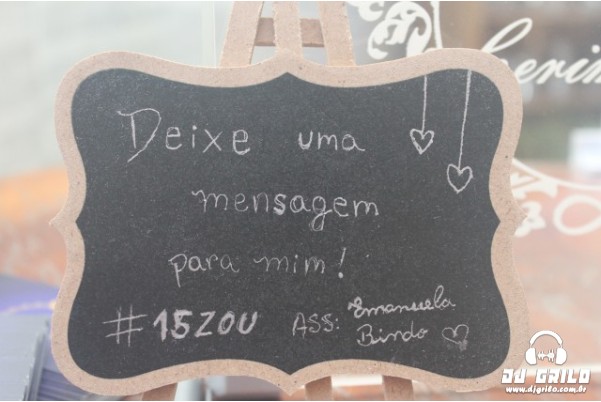 Deixe uma
mensagem
para mim!
#15ZOU ASS: Emanuela
Bindo
DJ GRILO
www.djgrilo.com.br